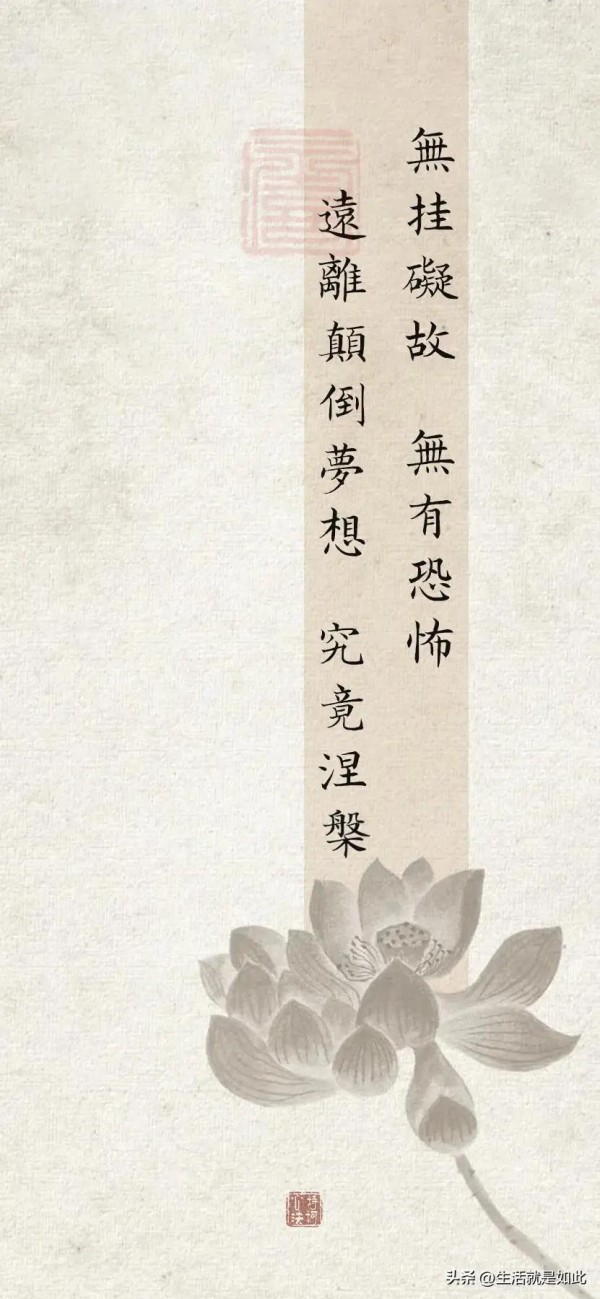 無挂礙故 無有恐怖
遠離顛倒夢想 究竟涅槃
头条 @生活就是如此